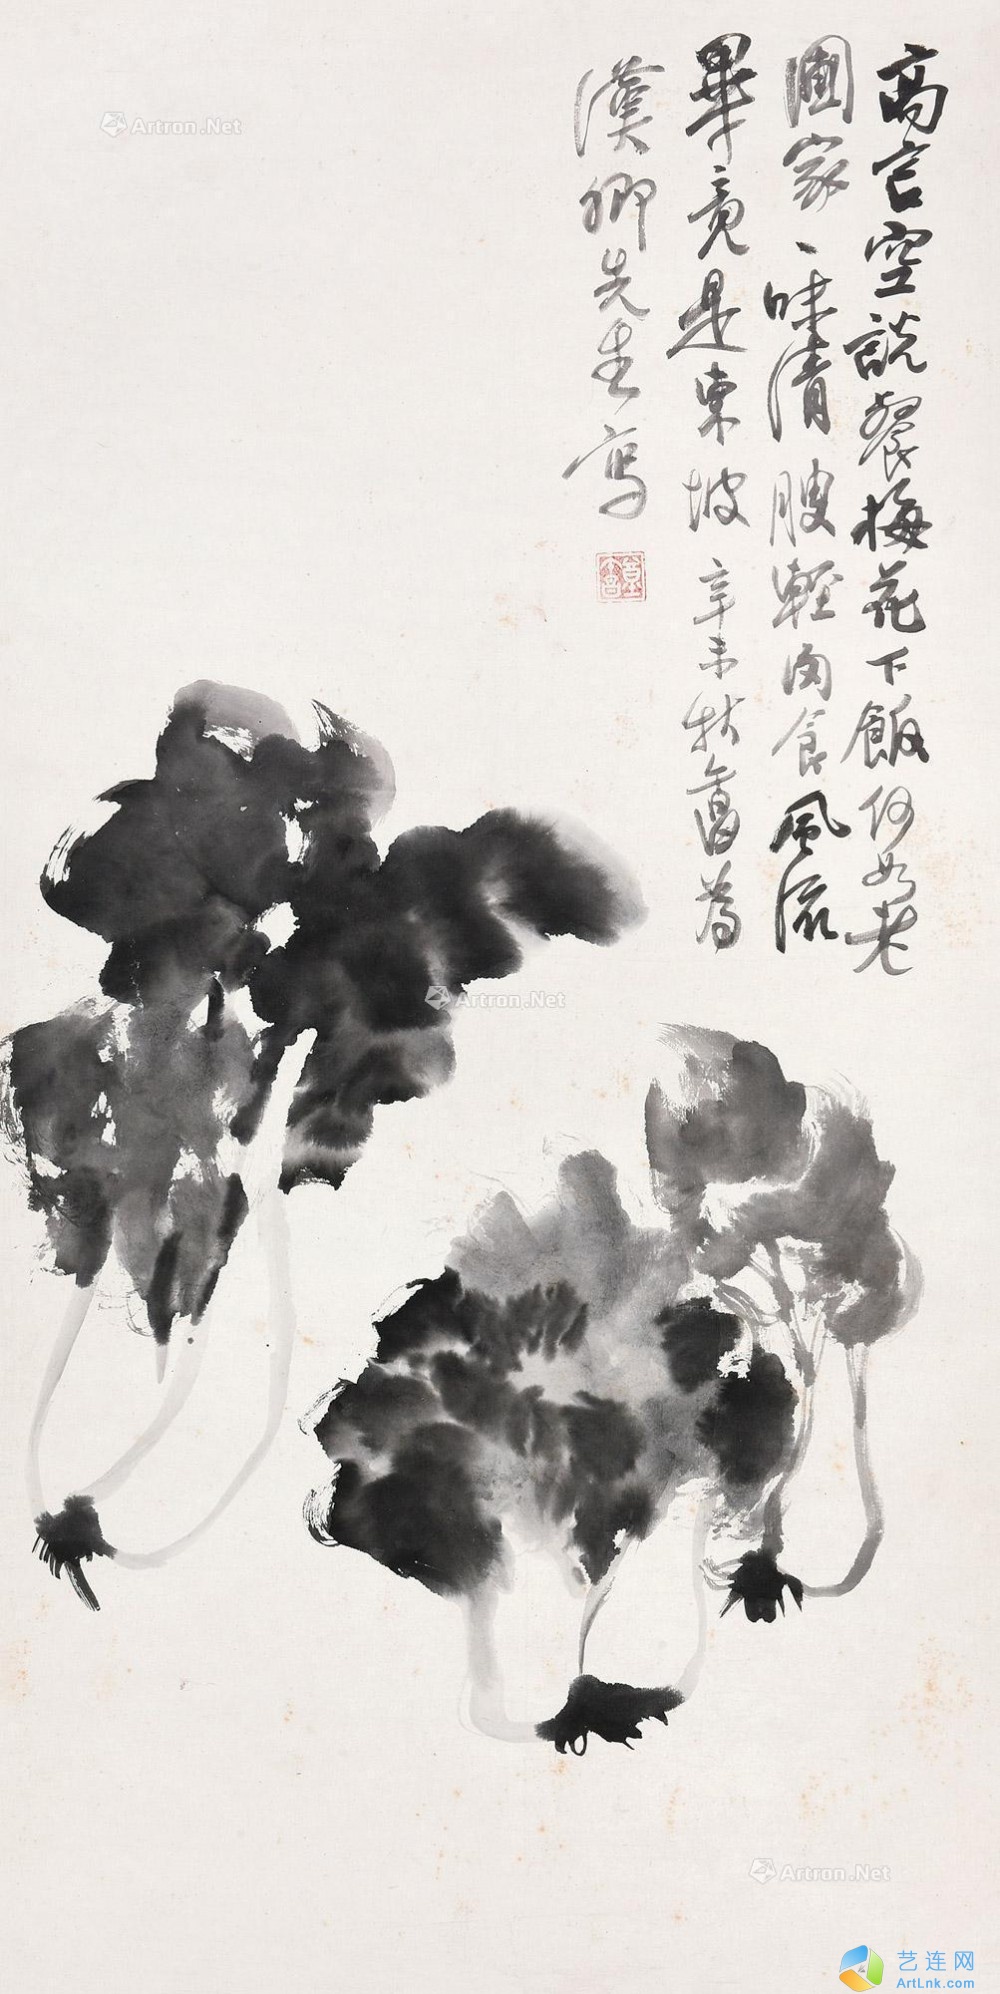 高言空説餐梅花下飯何如老
圃家、味清腴輕肉食風流
畢竟是東坡 辛未秋舊為
漢卿先生寫
臺書
Artron.Net
Artron.Net
Artron.Net
艺连网
ArtLnk.com